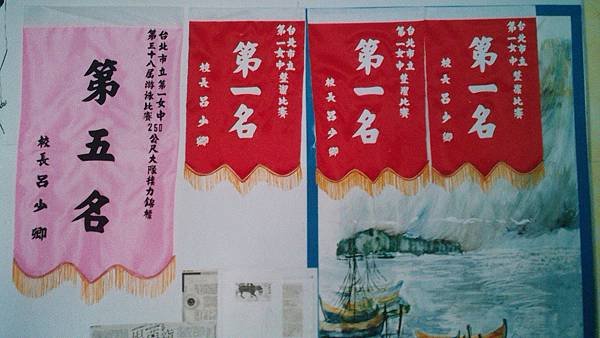 台北市立第一女中
第三十八屆游泳比賽250公尺大隊接力錦標
第五名
校長呂少卿
台北市立
第一女中整潔比賽
第一名
校長呂少卿
台北市立
第一女中整潔比賽
第一名
校長呂少卿
台北市立
第一女中整潔比賽
第一名
校長呂少卿